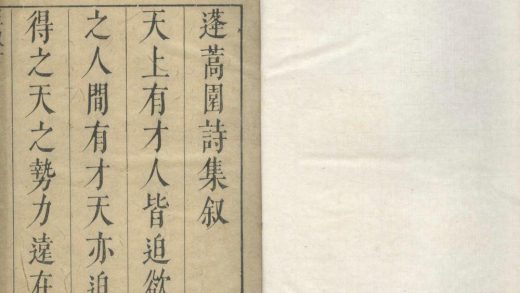 蓬蒿園詩集叙
天上有才人皆迫欲
之人間有才天亦迫
得之天之勢力遠在